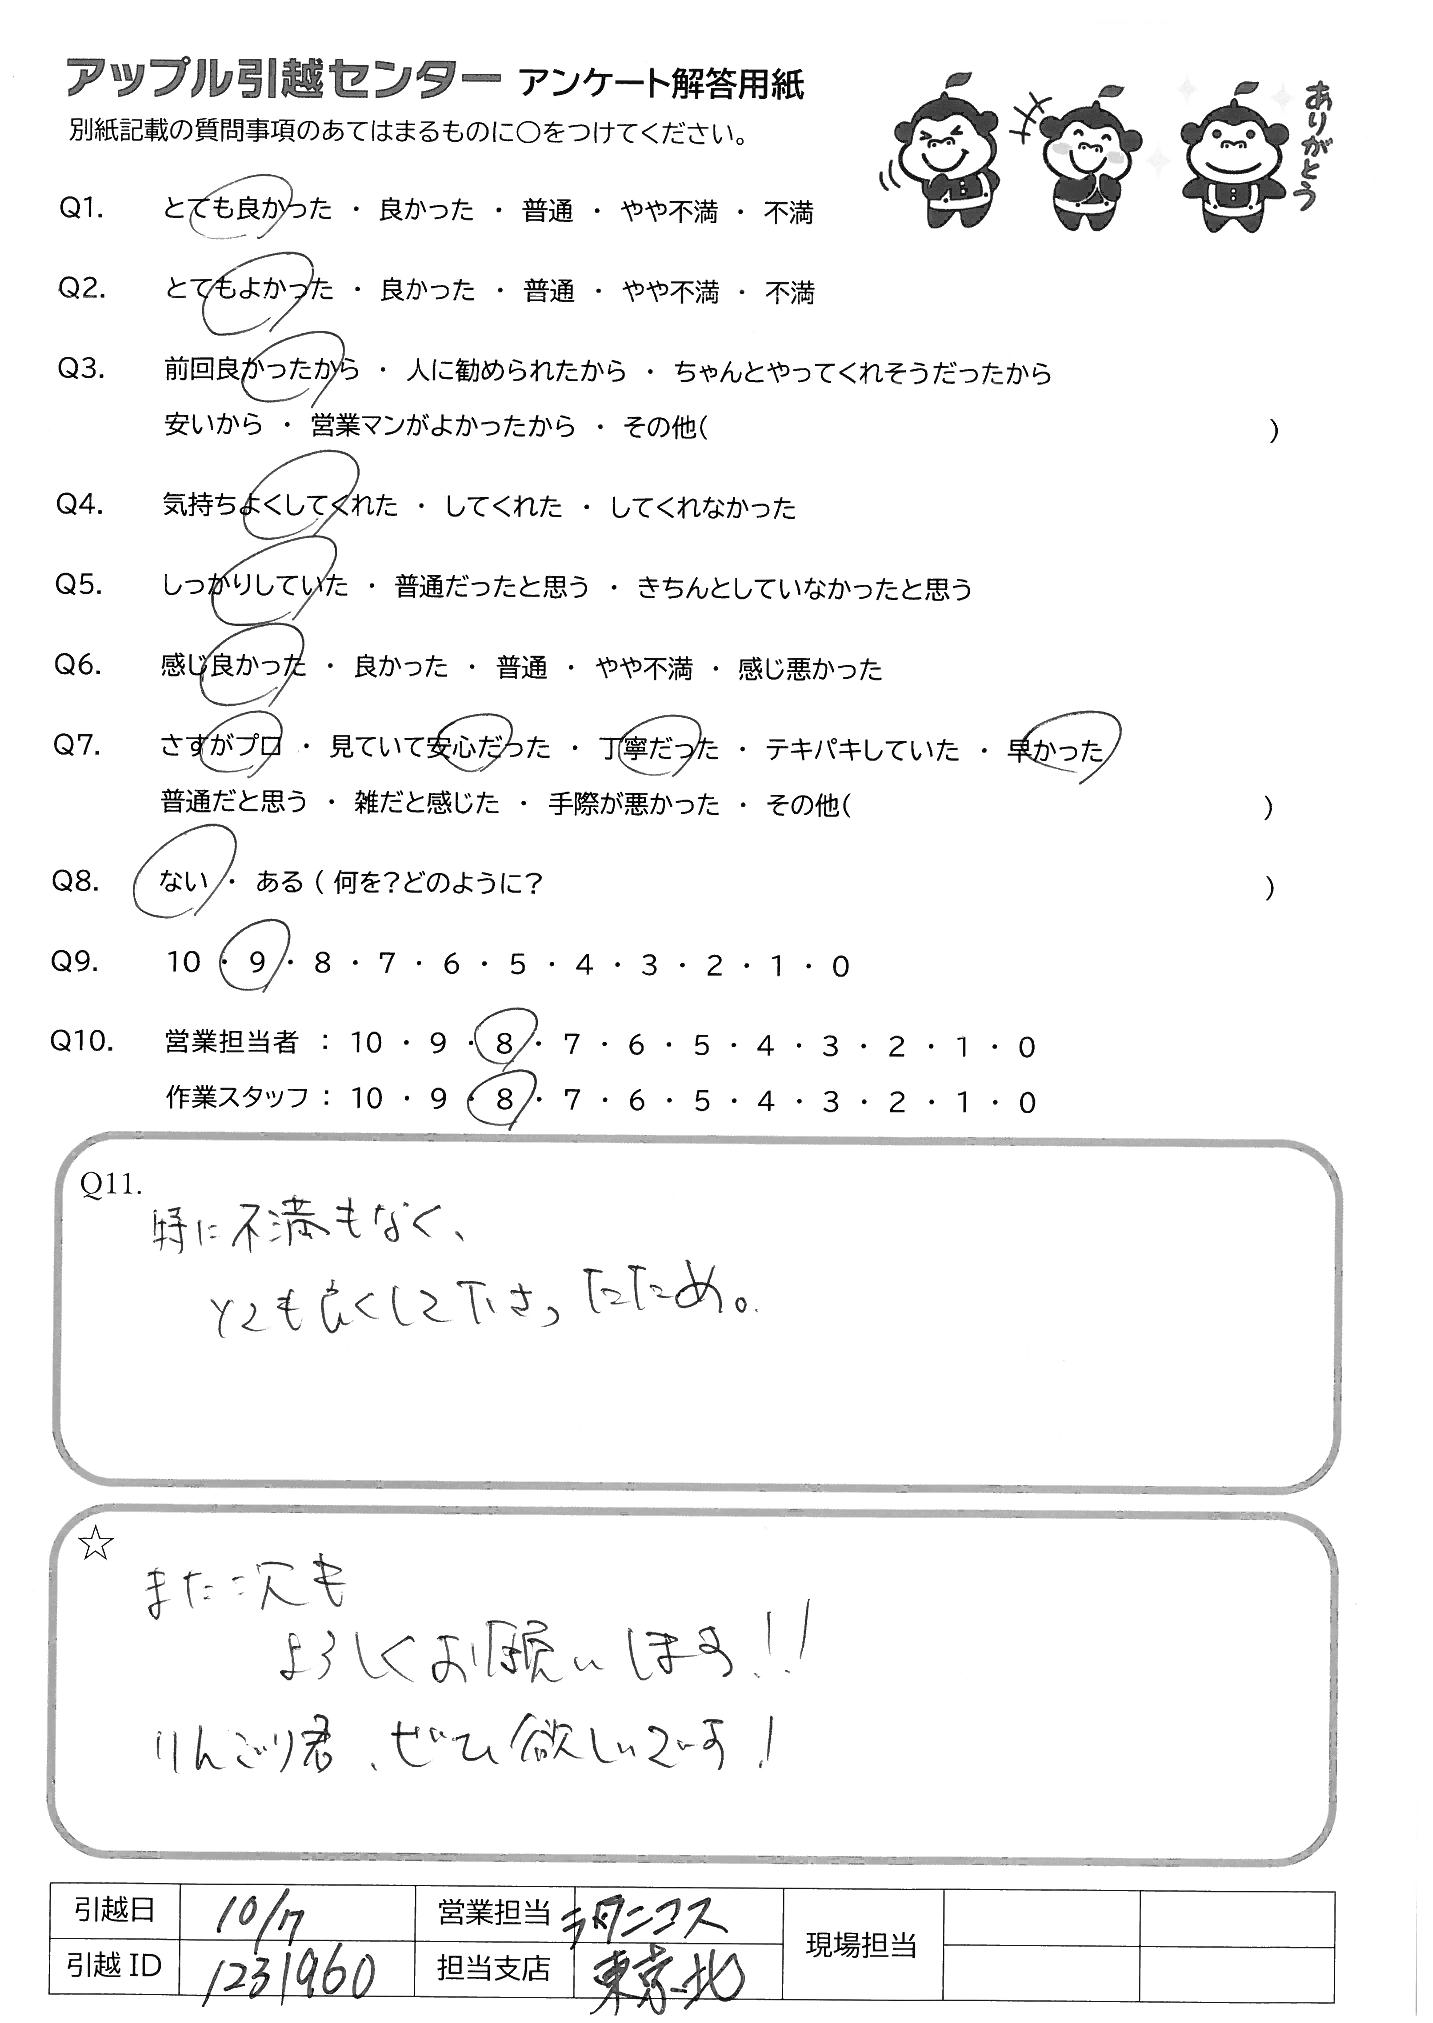 アップル引越センター アンケート解答用紙
別紙記載の質問事項のあてはまるものに○をつけてください。
ありがとう
Q1. とても良かった ・ 良かった ・ 普通 ・ やや不満 ・ 不満
Q2. とてもよかった ・ 良かった ・ 普通 ・ やや不満 ・ 不満
Q3. 前回良かったから ・ 人に勧められたから ・ ちゃんとやってくれそうだったから
安いから ・ 営業マンがよかったから ・ その他( )
Q4. 気持ちよくしてくれた ・ してくれた ・ してくれなかった
Q5. しっかりしていた ・ 普通だったと思う ・ きちんとしていなかったと思う
Q6. 感じ良かった ・ 良かった ・ 普通 ・ やや不満 ・ 感じ悪かった
Q7. さすがプロ ・ 見ていて安心だった ・ 丁寧だった ・ テキパキしていた ・ 早かった
普通だと思う ・ 雑だと感じた ・ 手際が悪かった ・ その他( )
Q8. ない ・ ある ( 何を?どのように? )
Q9. 10 ・ 9 ・ 8 ・ 7 ・ 6 ・ 5 ・ 4 ・ 3 ・ 2 ・ 1 ・ 0
Q10. 営業担当者 : 10 ・ 9 ・ 8 ・ 7 ・ 6 ・ 5 ・ 4 ・ 3 ・ 2 ・ 1 ・ 0
作業スタッフ : 10 ・ 9 ・ 8 ・ 7 ・ 6 ・ 5 ・ 4 ・ 3 ・ 2 ・ 1 ・ 0
Q11.
特に不満もなく、
とても良くして下さったため。
☆
また次も
よろしくお願いします!!
りんごり君、ぜひ欲しいです!
引越日 10/7 営業担当 現場担当
引越ID 1231960 担当支店 東京北